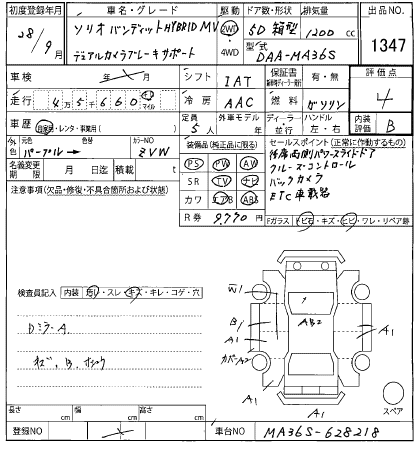 初度登録年月 車名・グレード 駆動 ドア数・形状 排気量 出品NO
28/9月 ソリオバンディット HYBRID MV 2WD 5D 箱型 1200 cc
デュアルカメラブレーキサポート 4WD 型式 DAA-MA36S 1347
車検 年 月 シフト IAT 保証書 有・無 評価点
走行 45660 キロ マイル 冷房 AAC 燃料 ガソリン 4
車歴 自家用・レンタ・事業用( ) 定員 5人 外車モデル 年 ディーラー・並行 ハンドル 左・右 内装評価 B
外色 元色 パープル 色替 カラーNO ZVW 装備品(純正品に限る) セールスポイント(正常に作動するもの)
名義変更期限 月 日迄 積載 t PS PW AW 後席両側パワースライドドア
注意事項(欠品・修復・不具合箇所および状態) SR TV ナビ クルーズコントロール
カワ エアB ABS バックカメラ
R券 9,770円 ETC車載器
Fガラス トビ石・キズ・ヒビ・ワレ・リペア跡
検査員記入 内装 汚レ・スレ・キズ・キレ・コゲ・穴
Dミラー A.
W1 AB2
B A1 A1
カバーA2
A1 A1 A1
スペア
長さ cm 幅 cm 高さ cm
登録NO 車台NO MA36S-628218